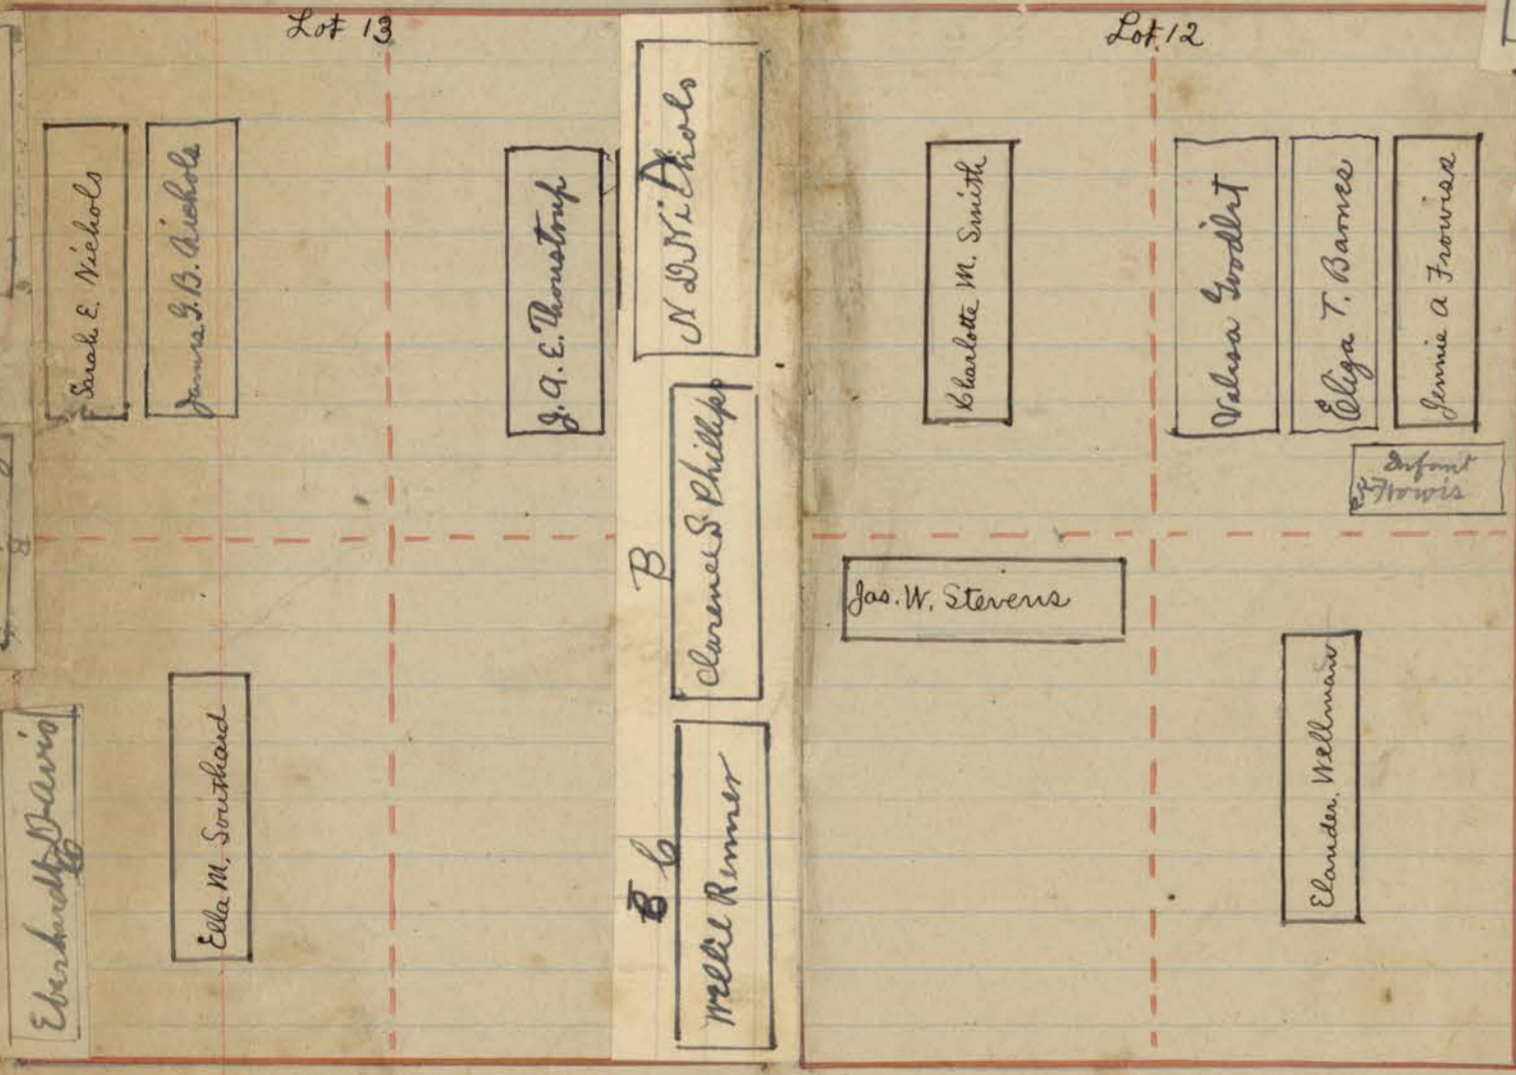 Lot 13
Lot 12
Sarah E. Nichols
James G. B. Nichols
J. A. E. Thonstrup
A
N D Nichols
Charlotte M. Smith
Valisa Goodlet
Eliza T. Barnes
Jennie A Frowiss
Infant
Frowis
B
Clarence S. Phillips
Jas. W. Stevens
Eberhardt Davis
Ella M. Southard
B C
Willie Renner
Elander Wellman
B